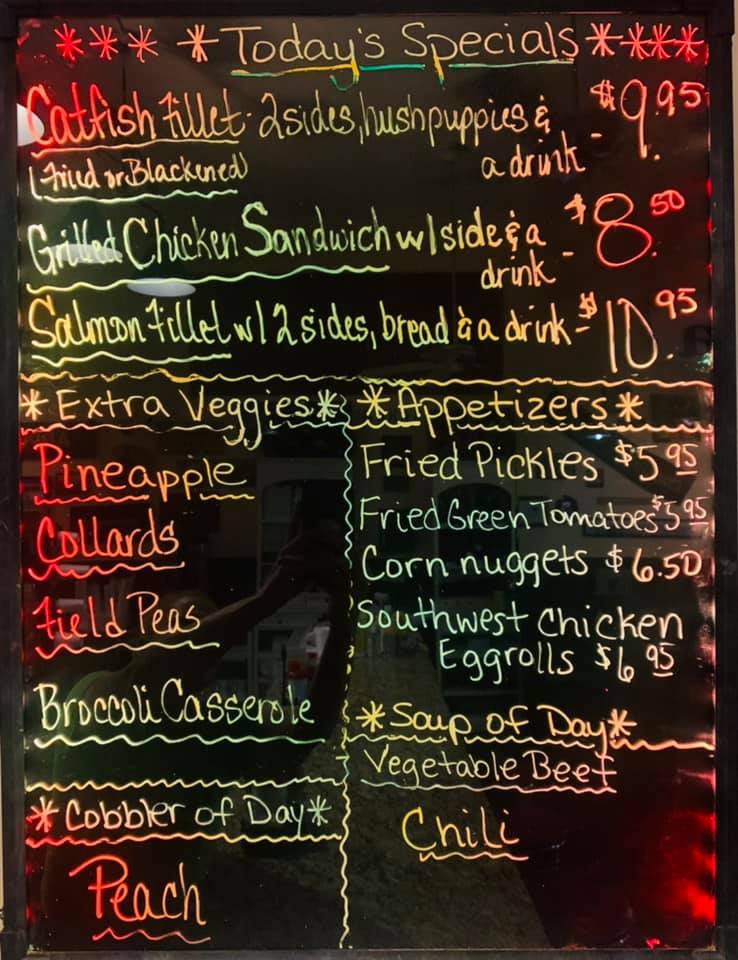 *** *Today's Specials****
Catfish Fillet - 2 sides, hushpuppies & a drink - $9.95
(Fried or Blackened)
Grilled Chicken Sandwich w/ side & a drink - $8.50
Salmon Fillet w/ 2 sides, bread & a drink - $10.95
*Extra Veggies*
Pineapple
Collards
Field Peas
Broccoli Casserole
*Cobbler of Day*
Peach
*Appetizers*
Fried Pickles $5.95
Fried Green Tomatoes $5.95
Corn nuggets $6.50
Southwest Chicken
Eggrolls $6.95
*Soup of Day*
Vegetable Beef
Chili